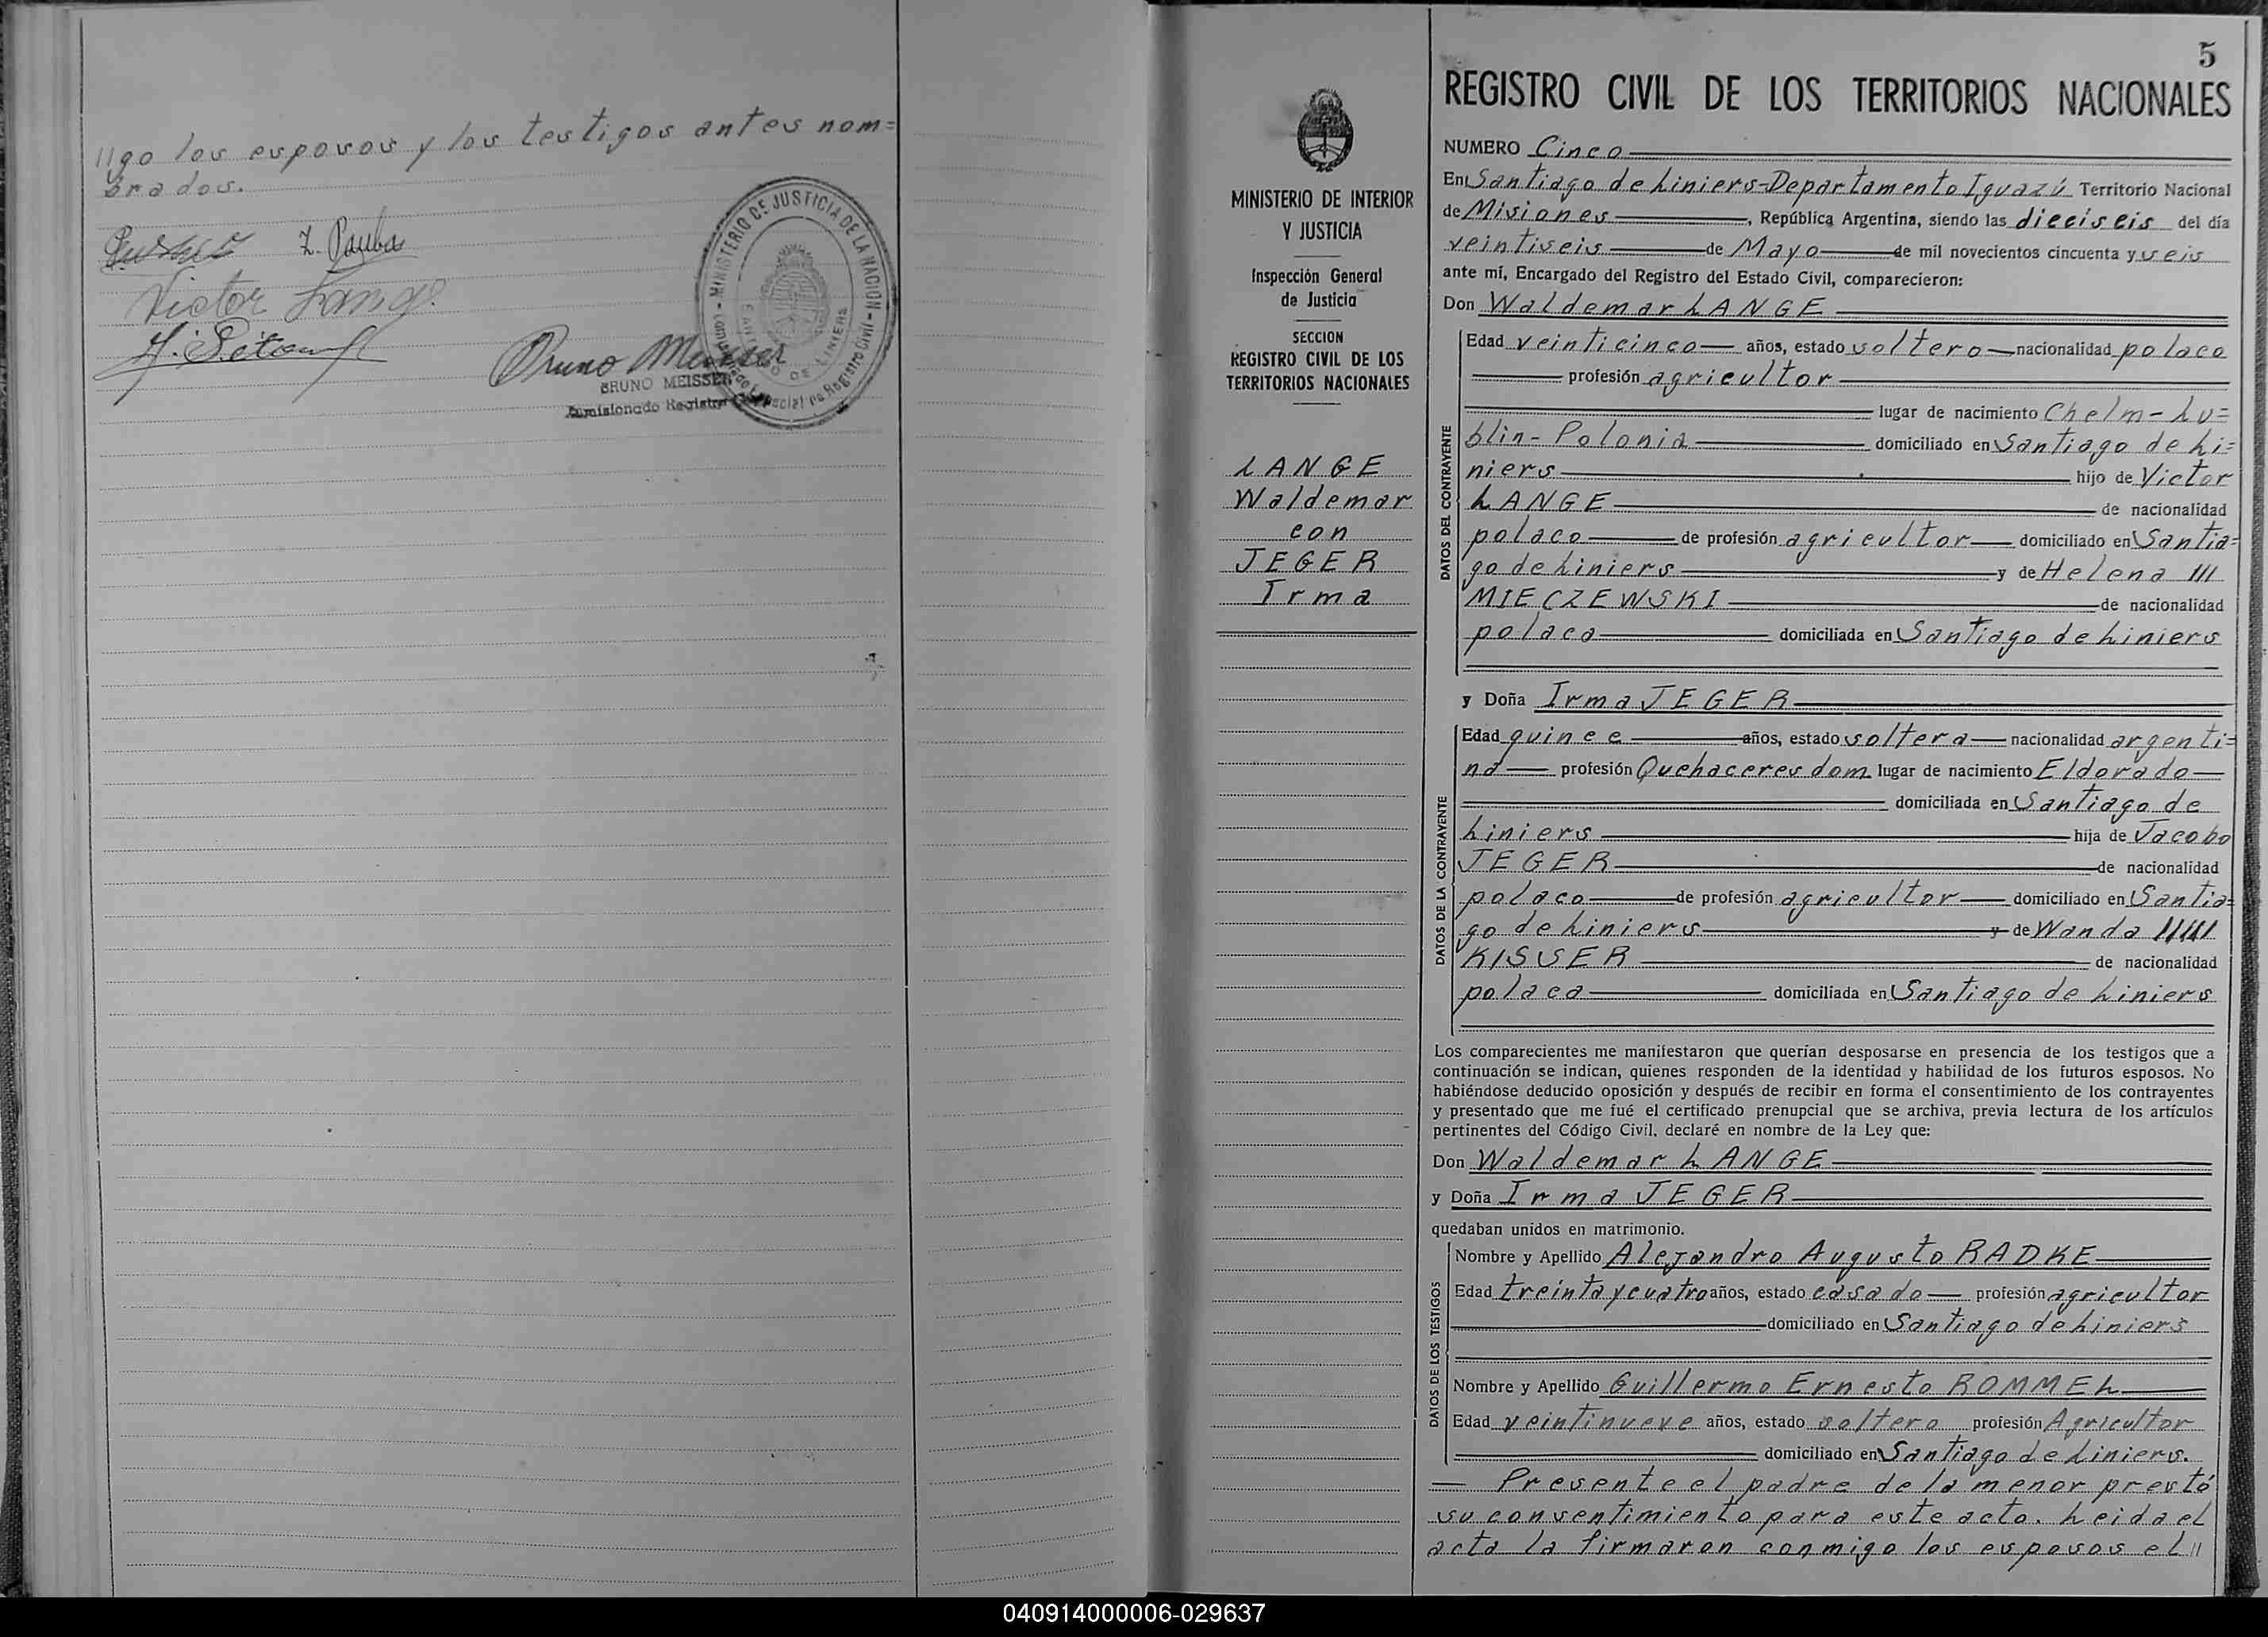 //go los esposos y los testigos antes nom=
brados.
Z. Pauba
Victor Lange
Bruno Meisser
BRUNO MEISSER
Comisionado Registro Civil
MINISTERIO DE JUSTICIA DE LA NACION - Comisionado Especial de Registro Civil -
SANTIAGO DE LINIERS
5
MINISTERIO DE INTERIOR
Y JUSTICIA
Inspección General
de Justicia
SECCION
REGISTRO CIVIL DE LOS
TERRITORIOS NACIONALES
LANGE
Waldemar
con
JEGER
Irma
REGISTRO CIVIL DE LOS TERRITORIOS NACIONALES
NUMERO Cinco
En Santiago de Liniers-Departamento Iguazú Territorio Nacional
de Misiones, República Argentina, siendo las dieciseis del día
veintiseis de Mayo de mil novecientos cincuenta y seis
ante mí, Encargado del Registro del Estado Civil, comparecieron:
Don Waldemar LANGE
DATOS DEL CONTRAYENTE
Edad veinticinco años, estado soltero nacionalidad polaco
profesión agricultor
lugar de nacimiento Chelm-Lu=
blin-Polonia domiciliado en Santiago de Li=
niers hijo de Victor
LANGE de nacionalidad
polaco de profesión agricultor domiciliado en Santia=
go de Liniers y de Helena ///
MIECZEWSKI de nacionalidad
polaca domiciliada en Santiago de Liniers
y Doña Irma JEGER
DATOS DE LA CONTRAYENTE
Edad quince años, estado soltera nacionalidad argenti=
na profesión Quehaceres dom. lugar de nacimiento Eldorado
domiciliada en Santiago de
Liniers hija de Jacobo
JEGER de nacionalidad
polaco de profesión agricultor domiciliado en Santia=
go de Liniers y de Wanda /////
KISSER de nacionalidad
polaca domiciliada en Santiago de Liniers
Los comparecientes me manifestaron que querían desposarse en presencia de los testigos que a
continuación se indican, quienes responden de la identidad y habilidad de los futuros esposos. No
habiéndose deducido oposición y después de recibir en forma el consentimiento de los contrayentes
y presentado que me fué el certificado prenupcial que se archiva, previa lectura de los artículos
pertinentes del Código Civil, declaré en nombre de la Ley que:
Don Waldemar LANGE
y Doña Irma JEGER
quedaban unidos en matrimonio.
DATOS DE LOS TESTIGOS
Nombre y Apellido Alejandro Augusto RADKE
Edad treinta y cuatro años, estado casado profesión agricultor
domiciliado en Santiago de Liniers
Nombre y Apellido Guillermo Ernesto ROMMEL
Edad veintinueve años, estado soltero profesión Agricultor
domiciliado en Santiago de Liniers.
— Presente el padre de la menor prestó
su consentimiento para este acto. Leida el
acta la firmaron conmigo los esposos el //
040914000006-029637